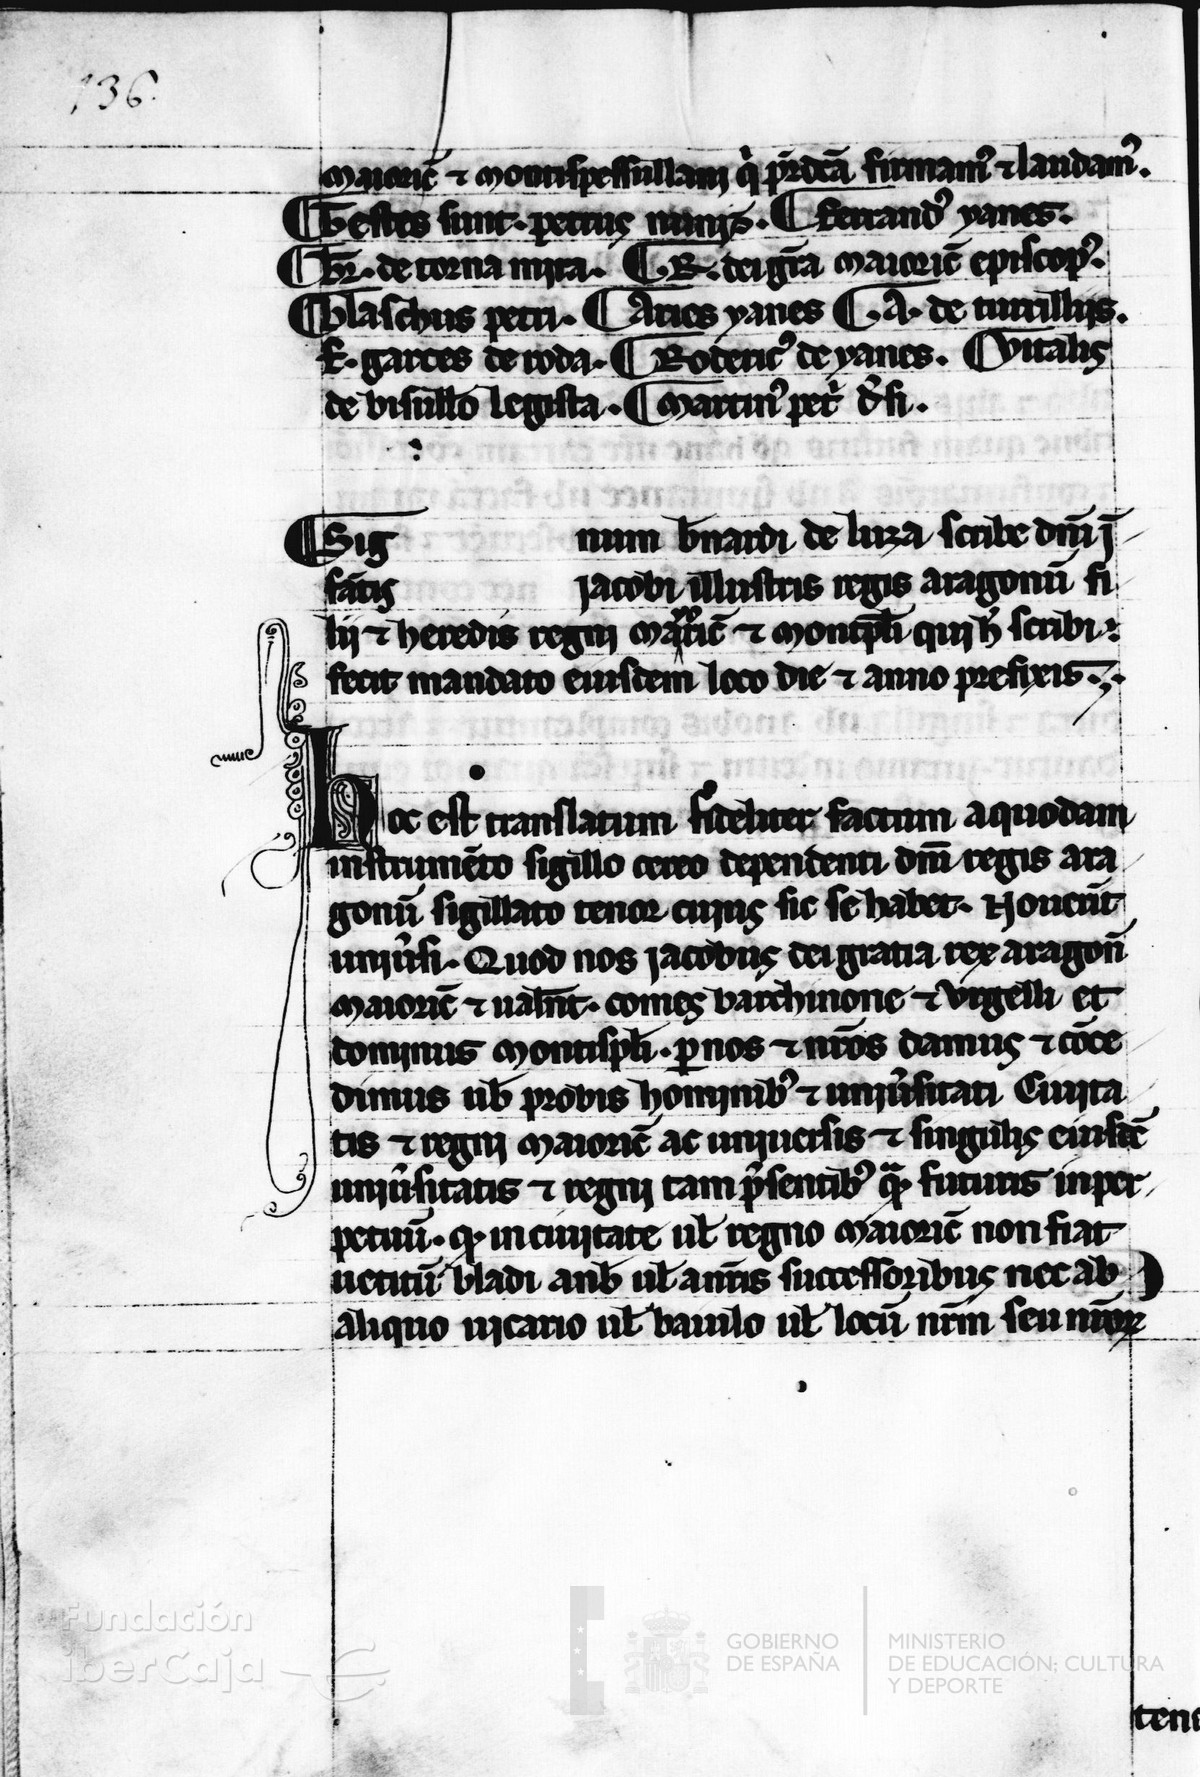 136
maioric̄ ⁊ montispessullani q̇ p̄rdc̄ā firmam᾿ ⁊ laudam᾿.
Testes sunt. petrus nunis. Ferrand᾿ yanes.
Br̄. de torna mira. R. dei gr̄a maioric̄ episcop᾿.
blaschus petri. Aries yanes A. de turrillijs.
F. garces de roda. Roderic᾿ de yanes. Vitalis
de visullo legista. Martin᾿ pet᾿
Sig num b̄nardi de luza scribe dn̄i ī
fātis jacobi illustris regis aragonū fi
lij ⁊ heredis regni maioric̄ ⁊ montpl̄i qui h̄ scribi
fecit mandato eiusdem loco die ⁊ anno prefixis.
hoc est translatum fideliter factum a quodam
instrumēto sigillo cereo dependenti dn̄i regis ara
gonū sigillato tenor cuius sic se habet. Nouerīt
uniu᾿si. Quod nos jacobus dei gratia rex aragon̄
maioric̄ ⁊ ualēn̄. comes barchinone ⁊ Vrgelli et
dominus montispl̄i. p nos ⁊ nr̄os damus ⁊ cōce
dimus uob̄ probis hominib᾿ ⁊ uniu᾿sitati Ciuita
tis ⁊ regni maioric̄ ac uniuersis ⁊ singulis eiusdē
uniu᾿sitatis ⁊ regni tam p᾿sentib᾿ qᵃ futuris in per
petuū. q in ciuitate ul̄ regno maioric̄ non fiat
uetitū bladi a nob̄ ul̄ a nr̄is successoribus nec ab
aliquo uicario ul̄ baiulo ul̄ locū nr̄m seu nr̄oꝝ
Fundación
iberCaja
GOBIERNO
DE ESPAÑA
MINISTERIO
DE EDUCACIÓN, CULTURA
Y DEPORTE